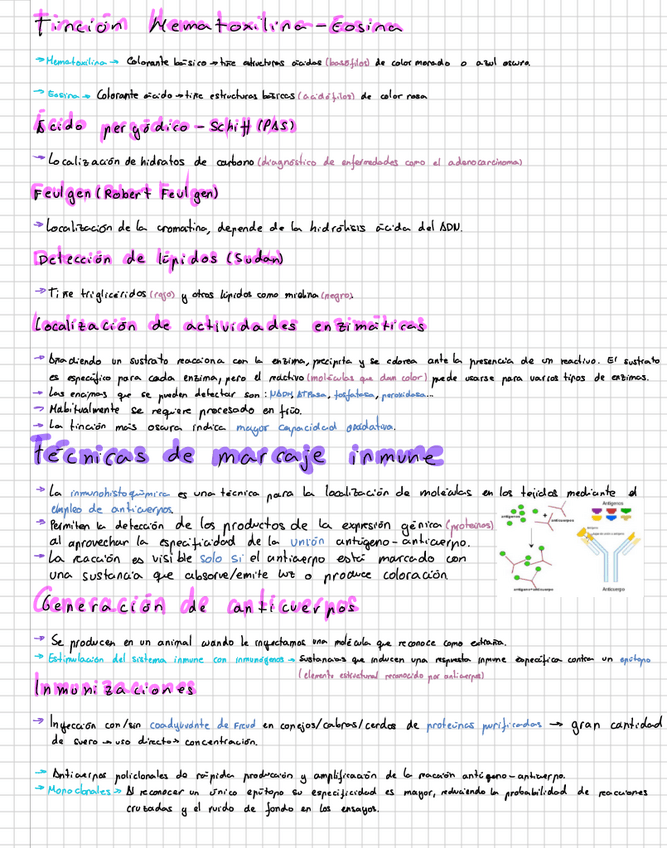 Tinción Hematoxilina - Eosina
→ Hematoxilina → Colorante básico → tiñe estructuras ácidas (basófilos) de color morado o azul oscuro.
→ Eosina → Colorante ácido → tiñe estructuras básicas (acidófilos) de color rosa
Ácido peryódico - Schiff (PAS)
→ Localización de hidratos de carbono (diagnóstico de enfermedades como el adenocarcinoma)
Feulgen (Robert Feulgen)
→ Localización de la cromatina, depende de la hidrólisis ácida del ADN.
Detección de lípidos (Sudan)
→ Tiñe triglicéridos (rojo) y otros lípidos como mielina (negro).
Localización de actividades enzimáticas
→ Añadiendo un sustrato reacciona con la enzima, precipita y se colorea ante la presencia de un reactivo. El sustrato
es específico para cada enzima, pero el reactivo (moléculas que dan color) puede usarse para varios tipos de enzimas.
→ Las enzimas que se pueden detectar son: NADH, ATPasa, fosfatasa, peroxidasa...
→ Habitualmente se requiere procesado en frío.
→ La tinción más oscura indica mayor capacidad oxidativa.
Técnicas de marcaje inmune
→ La inmunohistoquímica es una técnica para la localización de moléculas en los tejidos mediante el
empleo de anticuerpos
→ Permiten la detección de los productos de la expresión génica (proteínas)
al aprovechar la especificidad de la unión antígeno-anticuerpo.
→ La reacción es visible solo si el anticuerpo está marcado con
una sustancia que absorve/emite luz o produce coloración
antígenos
+
anticuerpos
antígeno+anticuerpo
Antígenos
Antígeno
Anticuerpo
Generación de anticuerpos
→ Se producen en un animal cuando le inyectamos una molécula que reconoce como extraña.
→ Estimulación del sistema inmune con inmunógenos → Sustancias que inducen una respuesta inmune específica contra un epítopo
(elemento estructural reconocido por anticuerpos)
Inmunizaciones
→ Inyección con/sin coadyuvante de Freud en conejos/cabras/cerdos de proteínas purificadas → gran cantidad
de suero → uso directo → concentración.
→ Anticuerpos policlonales de rápida producción y amplificación de la reacción antígeno-anticuerpo.
→ Monoclonales → Al reconocer un único epítopo su especificidad es mayor, reduciendo la probabilidad de reacciones
cruzadas y el ruido de fondo en los ensayos.